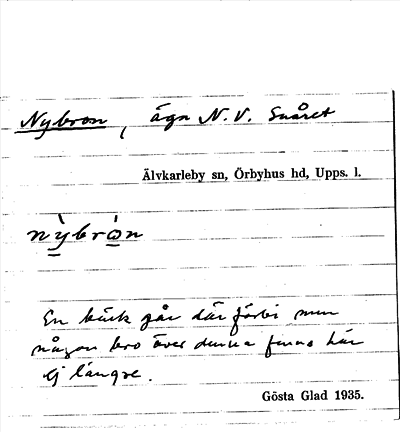 Nybron, ägn N.V. Snåret
Älvkarleby sn, Örbyhus hd, Upps. l.
nỳbrón
En bäck går där förbi men
någon bro över denna finns här
ej längre.
Gösta Glad 1935.